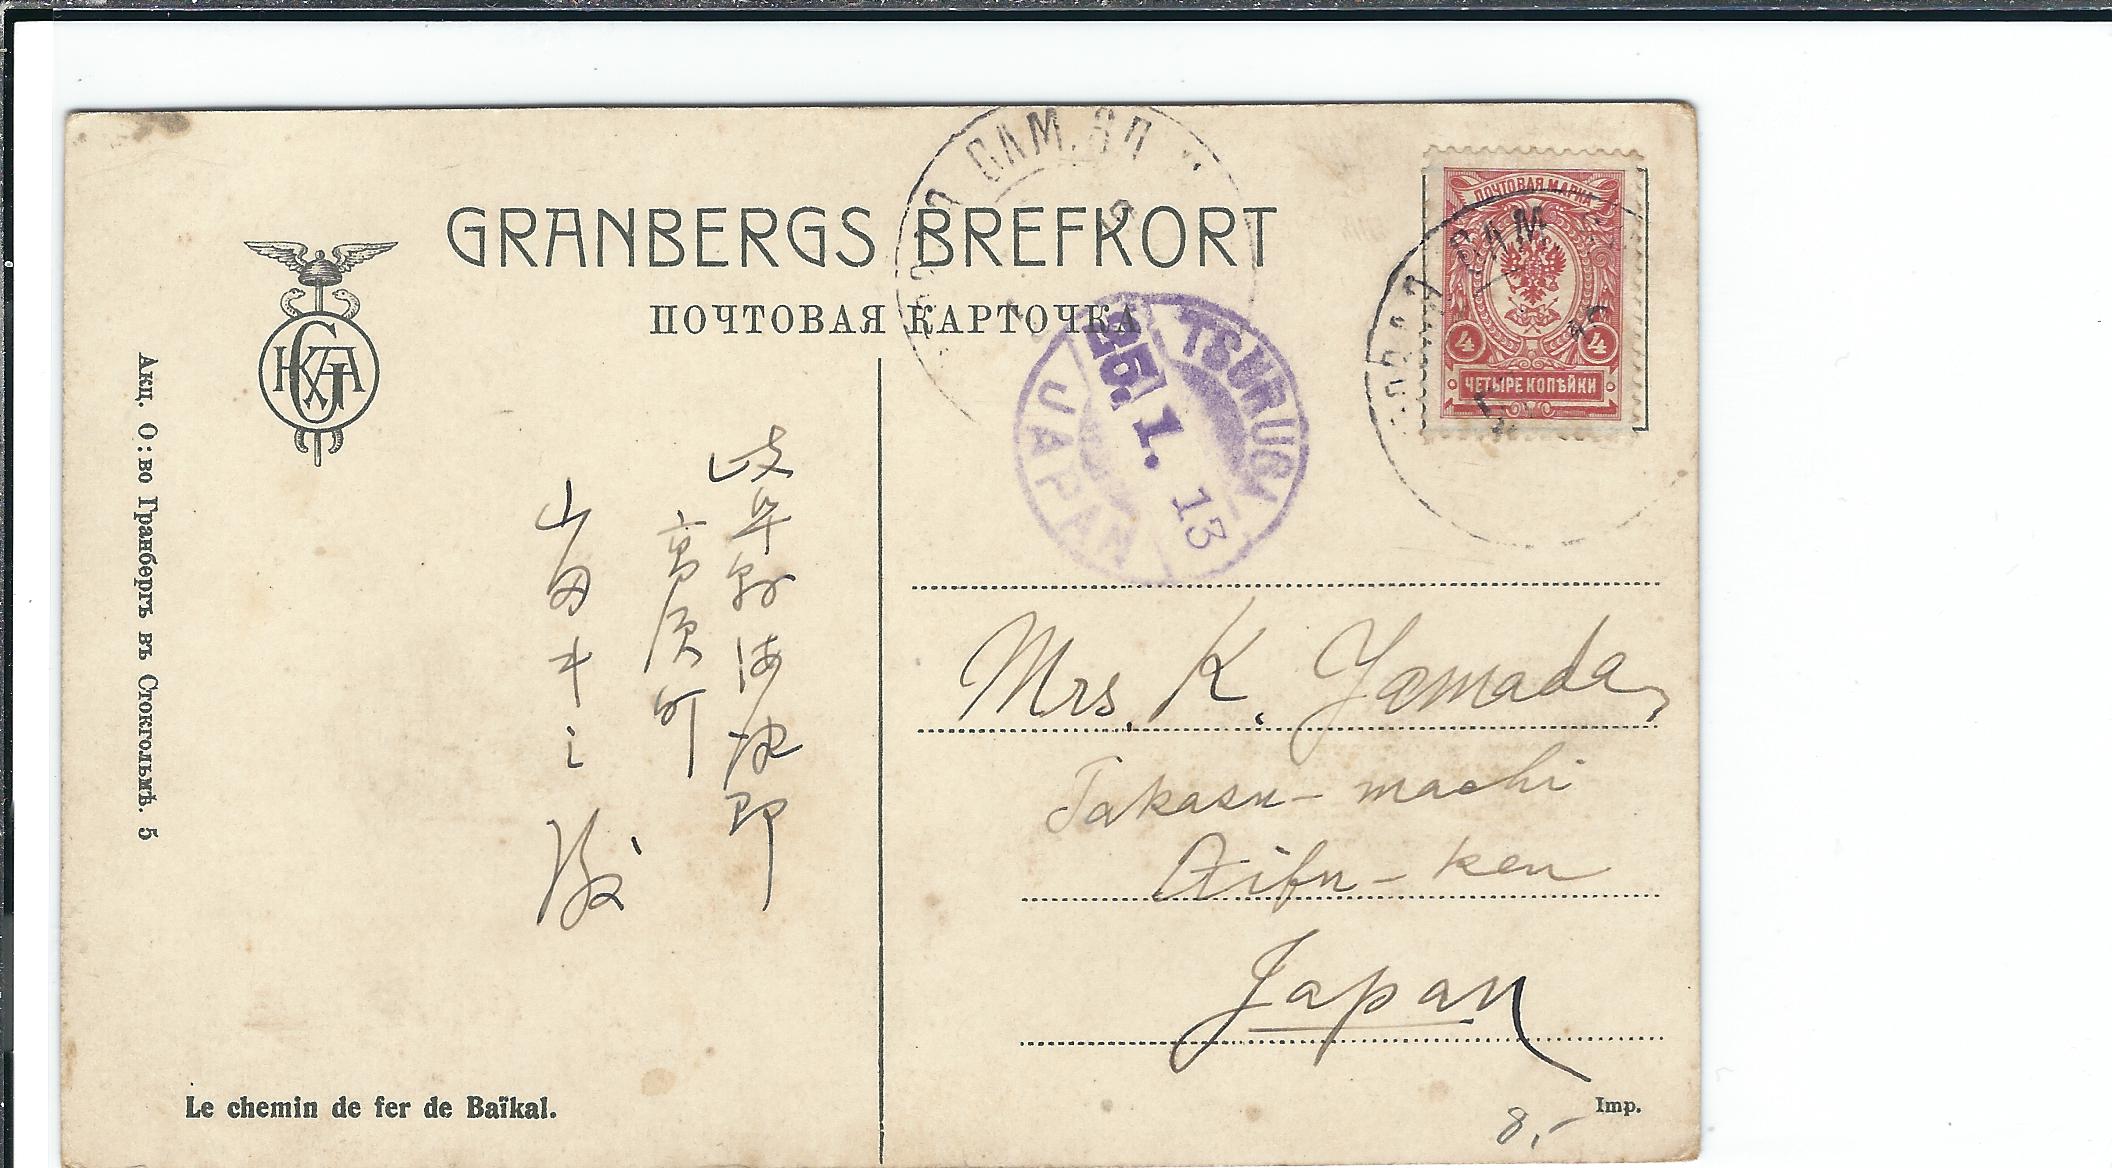 GRANBERGS BREFKORT
ПОЧТОВАЯ КАРТОЧКА
ПОЧТОВАЯ МАРКА
4 4
ЧЕТЫРЕ КОПѢЙКИ
TSURUGA
25. 1. 13
JAPAN
Акц. О: во Гранбергъ въ Стокгольмѣ. 5
岐阜縣海津郡
高須町
山田
Mrs. K. Yamada,
Takasu-machi
Gifu-ken
Japan
Le chemin de fer de Baïkal.
Imp.
8,-